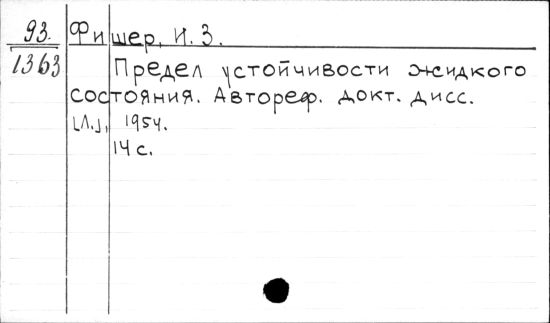 93. Фишер, И. З.
1363 Предел устойчивости жидкого
состояния. Автореф. докт. дисс.
[Л.], 1954.
14 с.